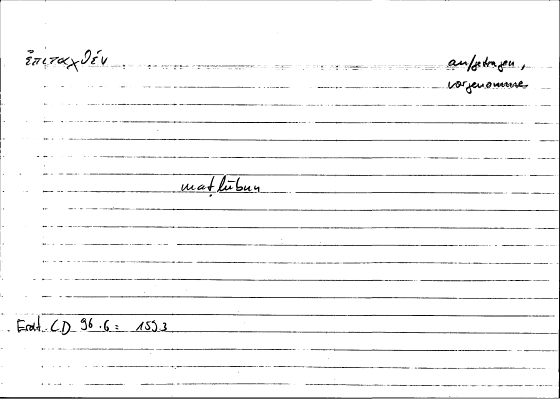 ἐπιταχθέν
aufgetragen,
vorgenommen
maṭlūbun
Erat. CD 96.6 = 1593